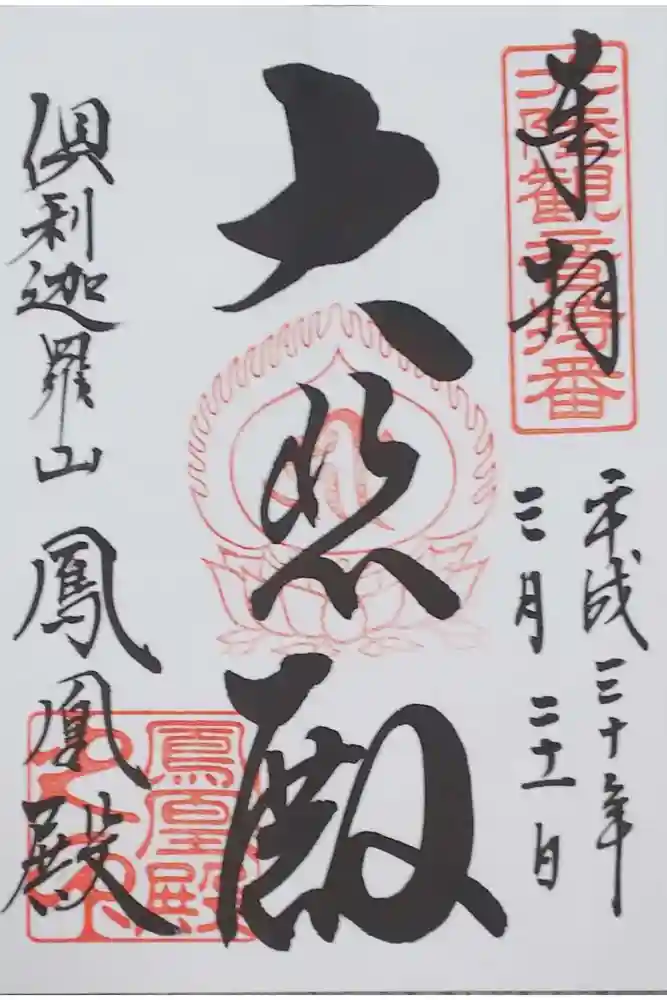 奉拝
北陸観音特番
平成三十年
三月二十一日
大悲殿
倶利迦羅山 鳳凰殿
鳳凰殿